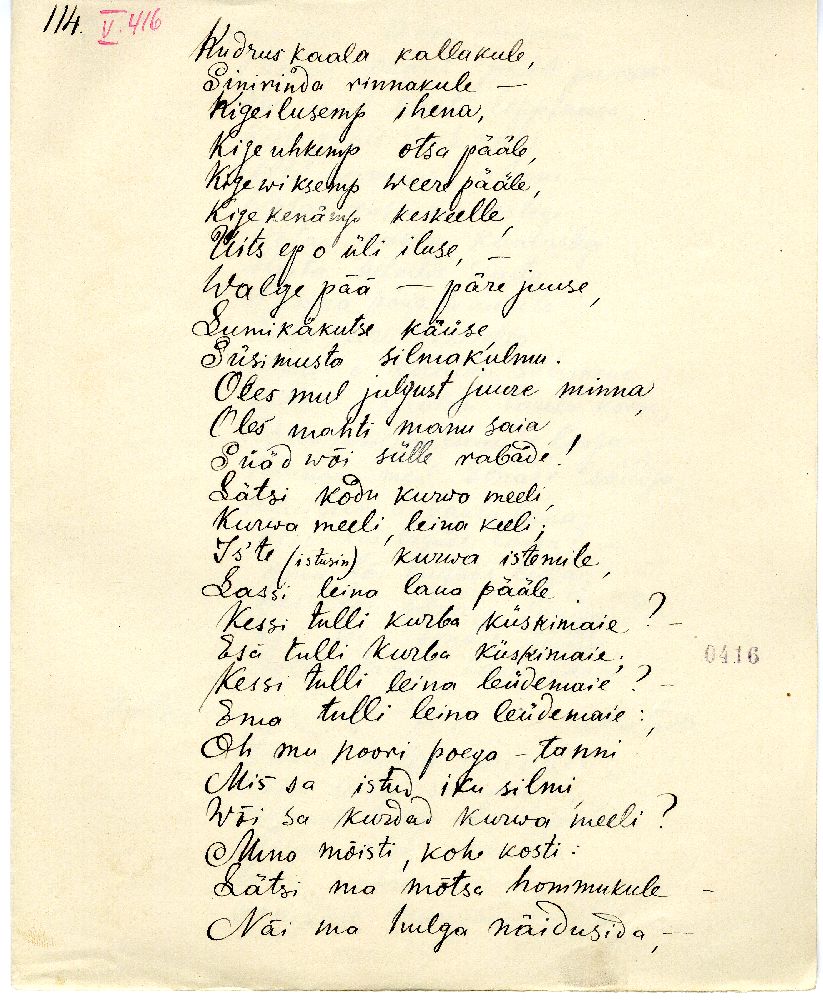 114. V. 416
Kudruskaala kallakule,
Sinirinda rinnakule —
Kigeilusemp ihena,
Kige uhkemp otsa pääle,
Kigewiksemp weere pääle,
Kige kenämp keskeelle,
Üits ep o üli iluse, —
Walge pää — päre juuse,
Lumikäkutse käüse
Süsimusta silmakulmu.
Oles mul julgust juure minna,
Oles mahti manu saia,
Süäd wõi sülle rabäde!
Lätsi kodu kurwa meeli,
Kurwa meeli, leina keeli;
Is'te (istusin) kurwa istemile,
Lassi leina laua pääle.
Kessi tulli kurba küssimaie? —
Esä tulli kurba küssimaie;
0416
Kessi tulli leina leüdemaie? —
Ema tulli leina leüdemaie:,
Oh mu noori poega - tanni
Mis sa istud iku silmi,
Wõi sa kurdad kurwa meeli?
Mina mõisti, kohe kosti:
Lätsi ma mõtsa hommukule —
Näi ma hulga näidusida, —